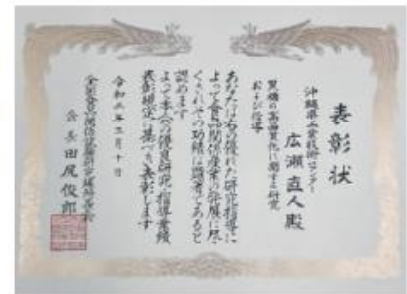 表彰状
沖縄県工業技術センター
広瀬直人殿
黒糖の高品質化に関する研究
および指導
あなたは右の優れた研究指導に
よって食品関係産業の発展に尽
くされその功績は顕著であると
認めます
よって本会の優良研究・指導業績
表彰規定に基づき表彰します
令和二年三月十日
会長田尻俊郎